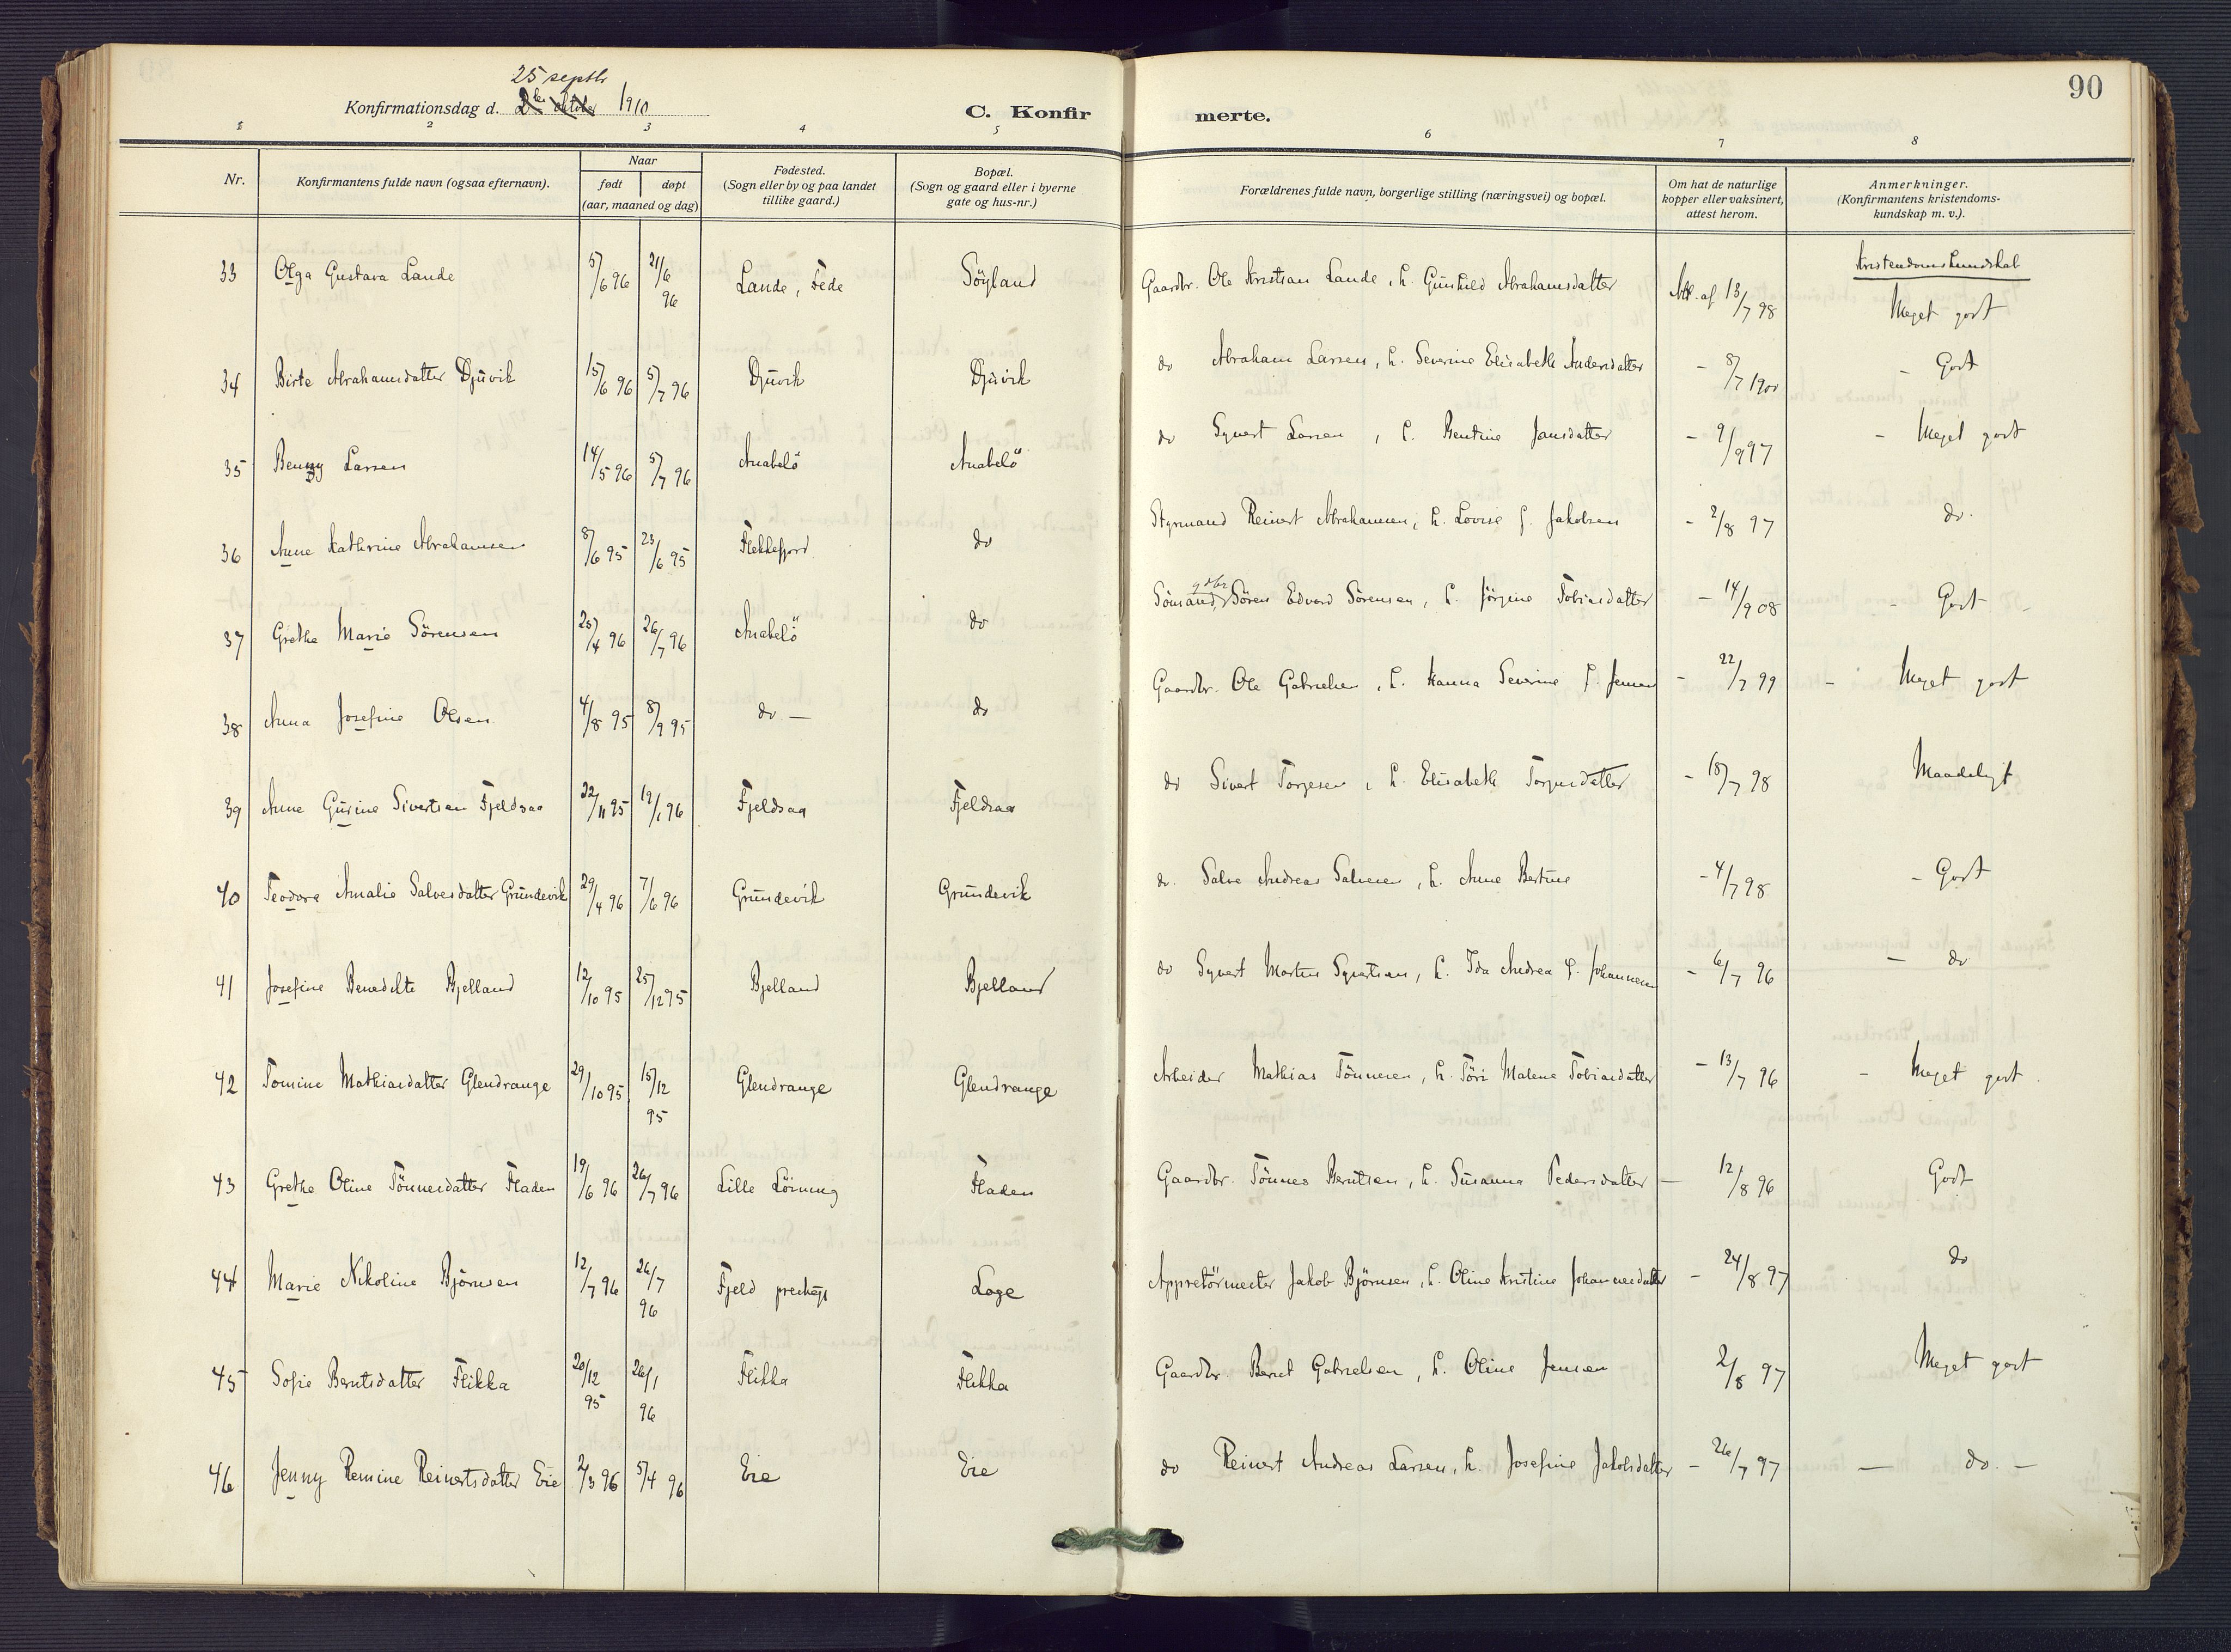 90
25 septbr
Konfirmationsdag d. 2den oktober 1910
C. Konfirmerte.
1 2 3 4 5 6 7 8
Nr. Konfirmantens fulde navn (ogsaa efternavn). Naar født døpt (aar, maaned og dag) Fødested. (Sogn eller by og paa landet tillike gaard.) Bopæl. (Sogn og gaard eller i byerne gate og hus-nr.) Forældrenes fulde navn, borgerlige stilling (næringsvei) og bopæl. Om hat de naturlige kopper eller vaksinert, attest herom. Anmerkninger. (Konfirmantens kristendoms-kundskap m. v.).
Kristendomskundskab
33 Olga Gustava Lande 5/6 96 21/6 96 Lande, Fede Söyland Gaardbr. Ole Kristian Lande, h. Gunhild Abrahamsdatter Att. af 13/7 98 Meget godt
34 Birte Abrahamsdatter Djuvik 15/6 96 5/7 96 Djuvik Djuvik do Abraham Larsen, h. Severine Elisabeth Andersdatter - 8/7 1900 - Godt
35 Benny Larsen 14/5 96 5/7 96 Anabelö Anabelö do Syvert Larsen, h. Bentine Jansdatter - 9/9 97 - Meget godt
36 Anne Kathrine Abrahamsen 8/6 95 23/6 95 Flekkefjord do Styrmand Reinert Abrahamsen, h. Lovise f. Jakobsen - 2/8 97 do.
37 Grethe Marie Sörensen 25/4 96 26/7 96 Anabelö do Sömand, gdbr Sören Edvard Sörensen, h. Jörgine Tobiasdatter - 14/9 08 - Godt -
38 Anna Josefine Olsen 4/8 95 8/9 95 do - do Gaardbr. Ole Gabrielsen, h. Hanna Severine f. Jensen - 22/7 99 - Meget godt
39 Anne Gurine Sivertsen Fjeldsaa 22/11 95 19/1 96 Fjeldsaa Fjeldsaa do Sivert Torgesen, h. Elisabeth Torjusdatter - 18/7 98 Maadeligt
40 Teodora Amalie Salvesdatter Grundevik 29/4 96 7/6 96 Grundevik Grundevik do. Salve Andreas Salvesen, h. Anne Bertine - 4/7 98 - Godt
41 Josefine Benedikte Bjelland 12/10 95 25/12 95 Bjelland Bjelland do Syvert Martin Syvertsen, h. Ida Andrea f. Johannesen - 6/7 96 - do
42 Tomine Mathiasdatter Glendrange 29/10 95 15/12 95 Glendrange Glendrange Arbeider Mathias Tönnesen, h. Töri Malene Tobiasdatter - 13/7 96 - Meget godt
43 Grethe Oline Tönnesdatter Fladen 19/6 96 26/7 96 Lille Löining Fladen Gaardbr. Tönnes Berntsen, h. Susanna Pedersdatter - 12/8 96 Godt
44 Marie Nikoline Björnsen 12/7 96 26/7 96 Fjeld prestegj Loge Appretörmester Jakob Björnsen, h. Oline Kristine Johannesdatter - 24/8 97 do
45 Sofie Berntsdatter Flikka 20/12 95 26/1 96 Flikka Flikka Gaardbr. Bernt Gabrielsen, h. Oline Jensen 2/8 97 Meget godt
46 Jenny Remine Reinertsdatter Eie 2/3 96 5/4 96 Eie Eie do Reinert Andreas Larsen, h. Josefine Jakobsdatter - 26/7 97 - do. -